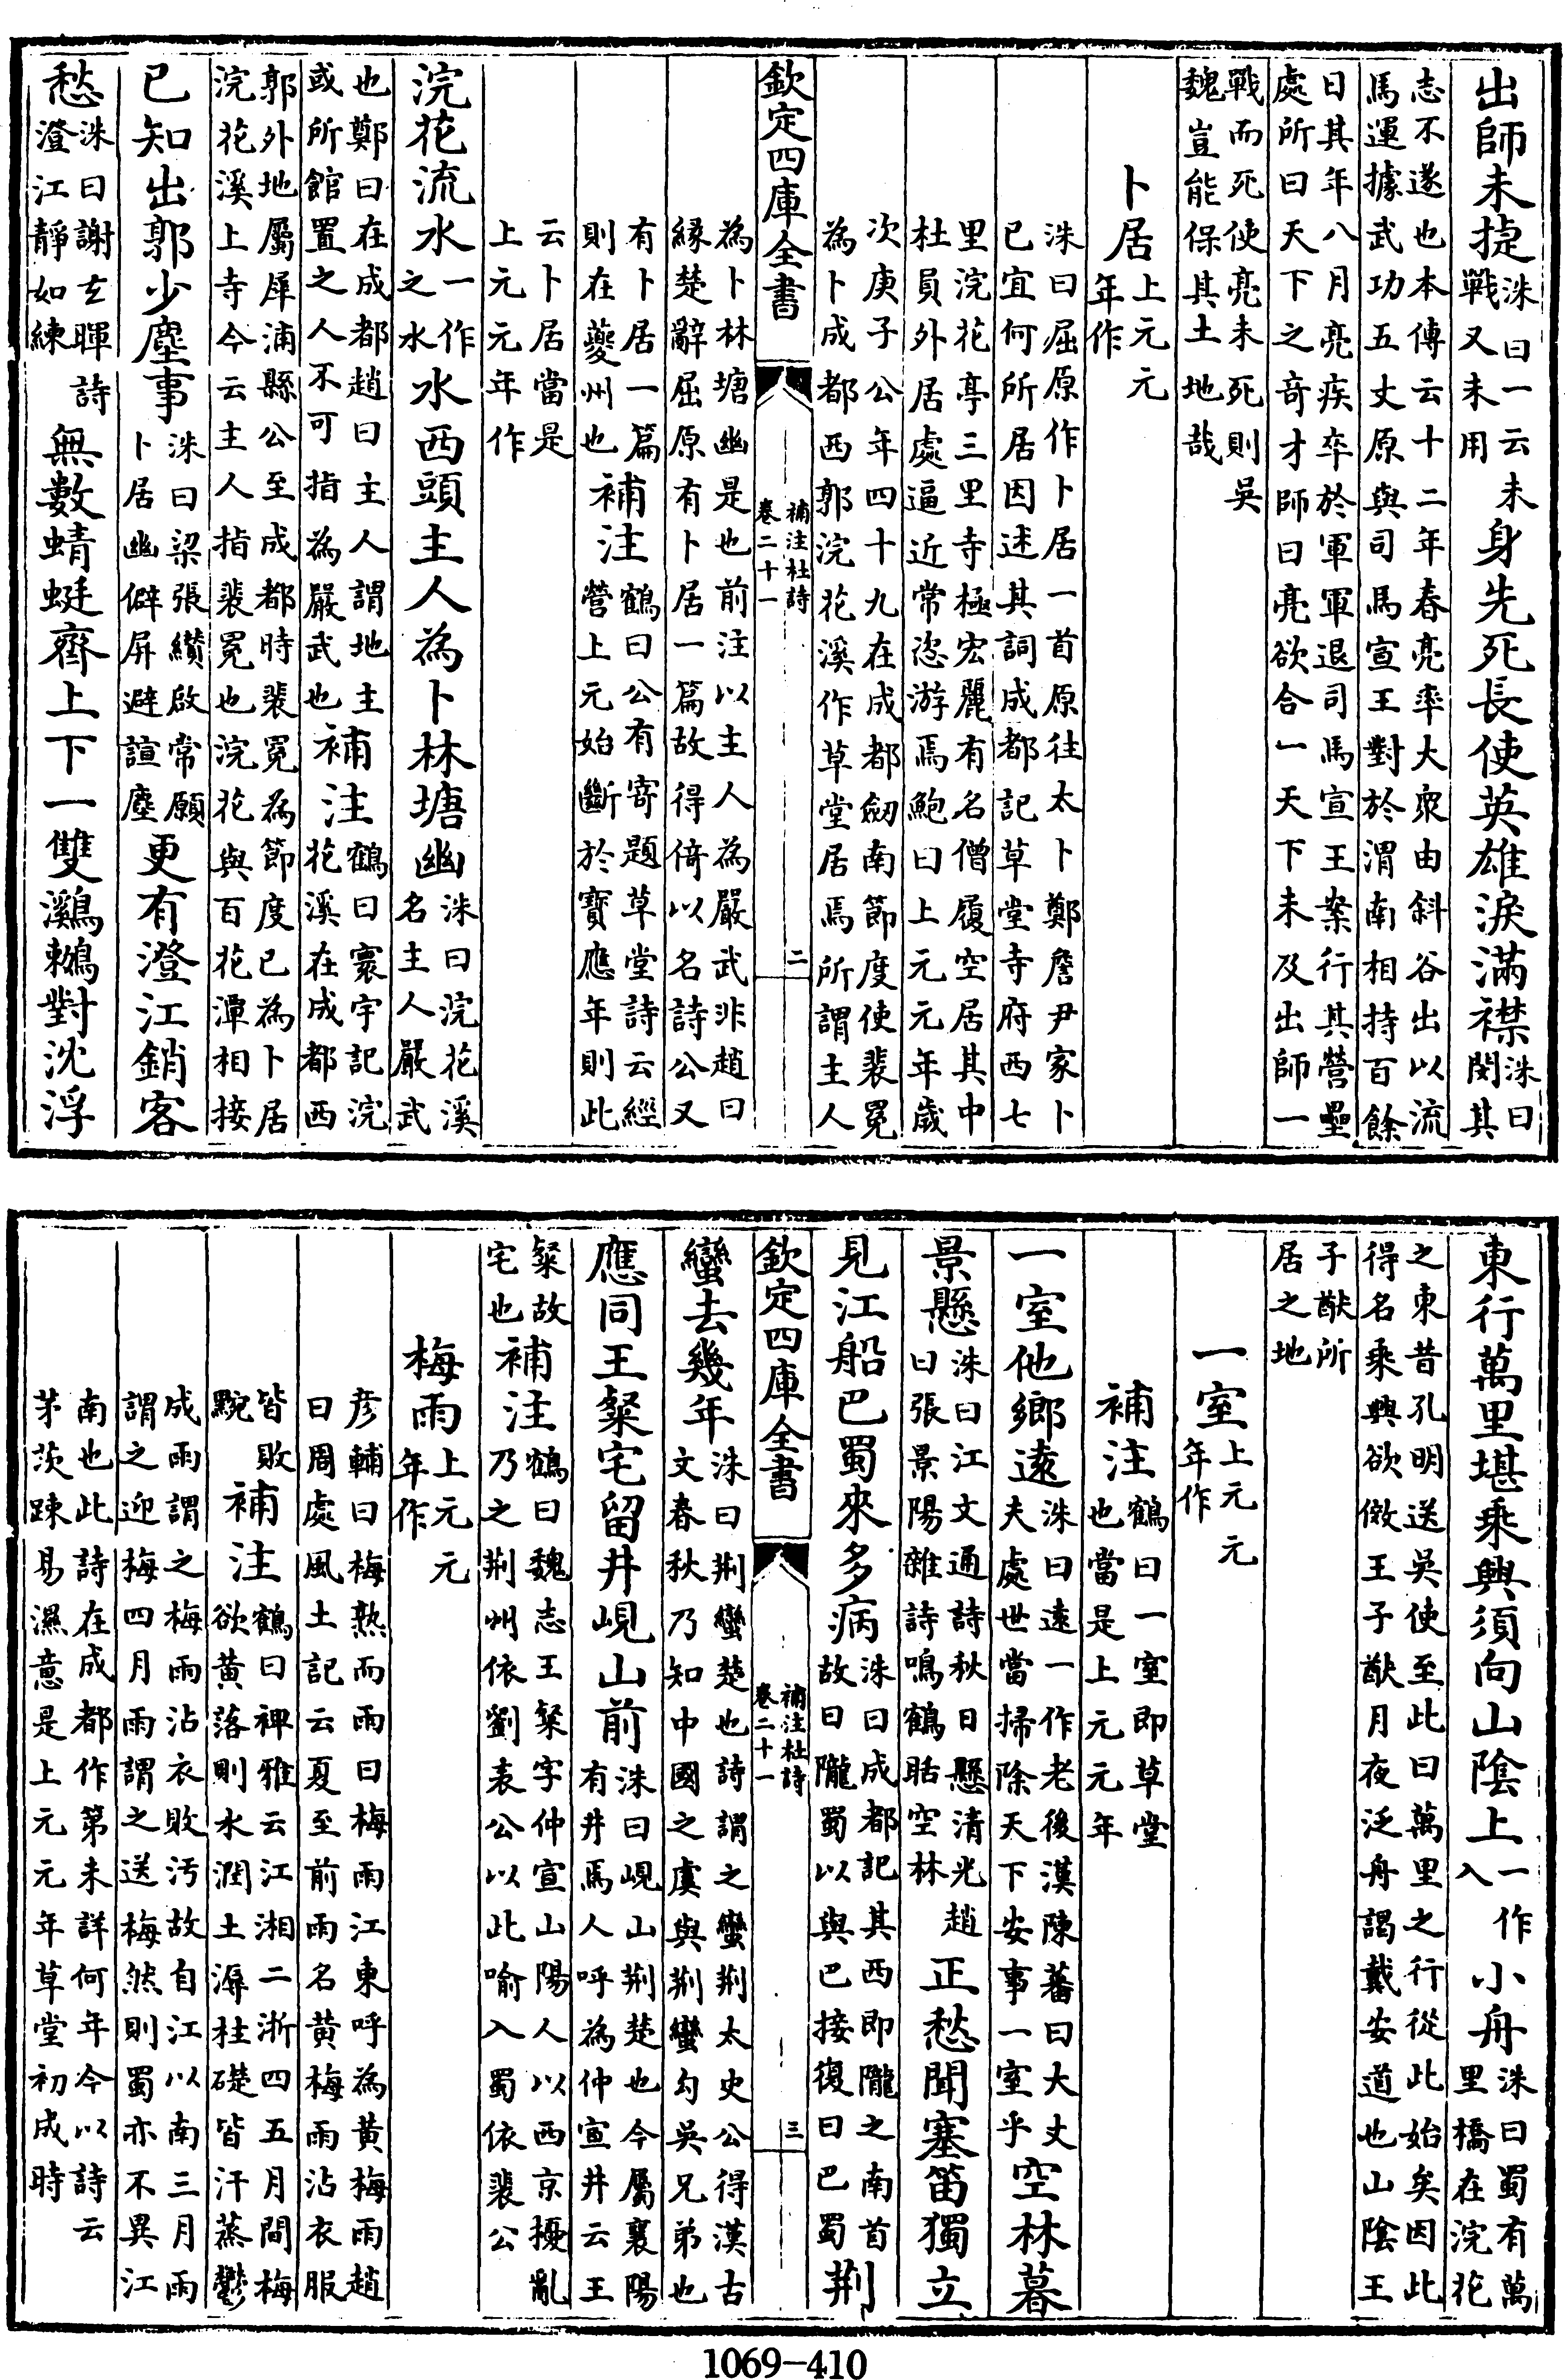 出師未捷洙曰一云未戰又未用身先死長使英雄淚滿襟洙曰閔其
志不遂也本傳云十二年春亮率大衆由斜谷出以流
馬運據武功五丈原與司馬宣王對於渭南相持百餘
日其年八月亮疾卒於軍軍退司馬宣王案行其營壘
處所曰天下之竒才師曰亮欲合一天下未及出師一
戰而死使亮未死則吳
魏豈能保其土地哉
卜居上元元年作
洙曰屈原作卜居一首原往太卜鄭詹尹家卜
已宜何所居因述其詞成都記草堂寺府西七
里浣花亭三里寺極宏麗有名僧履空居其中
杜員外居處逼近常恣游焉鮑曰上元元年歲
次庚子公年四十九在成都劒南節度使裴冕
為卜成都西郭浣花溪作草堂居焉所謂主人
欽定四庫全書
補注杜詩
卷二十一
二
為卜林塘幽是也前注以主人為嚴武非趙曰
縁楚辭屈原有卜居一篇故得倚以名詩公又
有卜居一篇則在夔州也補注鶴曰公有寄題草堂詩云經營上元始斷於寶應年則此
云卜居當是
上元元年作
浣花流水一作之水水西頭主人為卜林塘幽洙曰浣花溪名主人嚴武
也鄭曰在成都趙曰主人謂地主或所館置之人不可指為嚴武也補注鶴曰寰宇記浣花溪在成都西
郭外地屬犀浦縣公至成都時裴冕為節度已為卜居
浣花溪上寺今云主人指裴冕也浣花與百花潭相接
已知出郭少塵事洙曰梁張纉啟常願卜居幽僻屏避諠塵更有澄江銷客
愁洙曰謝玄暉詩澄江靜如練無數蜻蜓齊上下一雙鸂鶒對沈浮
東行萬里堪乘興須向山陰上一作入小舟洙曰蜀有萬里橋在浣花
之東昔孔明送吳使至此曰萬里之行從此始矣因此
得名乘興欲傚王子猷月夜泛舟謁戴安道也山陰王
子猷所
居之地
一室上元元年作
補注鶴曰一室即草堂也當是上元元年
一室他鄉遠洙曰遠一作老後漢陳蕃曰大丈夫處世當掃除天下安事一室乎空林暮
景懸洙曰江文通詩秋日懸清光趙曰張景陽雜詩鳴鶴聒空林正愁聞塞笛獨立
見江船巴蜀來多病洙曰成都記其西即隴之南首故曰隴蜀以與巴接復曰巴蜀荆
欽定四庫全書
補注杜詩
卷二十一
三
蠻去幾年洙曰荆蠻楚也詩謂之蠻荆太史公得漢古文春秋乃知中國之虞與荆蠻勾吳兄弟也
應同王粲宅留井峴山前洙曰峴山荆楚也今屬襄陽有井焉人呼為仲宣井云王
粲故宅也補注鶴曰魏志王粲字仲宣山陽人以西京擾亂乃之荆州依劉表公以此喻入蜀依裴公
梅雨上元元年作
彥輔曰梅熟而雨曰梅雨江東呼為黄梅雨趙
曰周處風土記云夏至前雨名黄梅雨沾衣服
皆敗黦補注鶴曰裨雅云江湘二浙四五月間梅欲黄落則水潤土溽柱礎皆汗蒸鬱
成雨謂之梅雨沾衣敗汚故自江以南三月雨
謂之迎梅四月雨謂之送梅然則蜀亦不異江
南也此詩在成都作第未詳何年今以詩云
茅茨踈易濕意是上元元年草堂初成時
1069-410